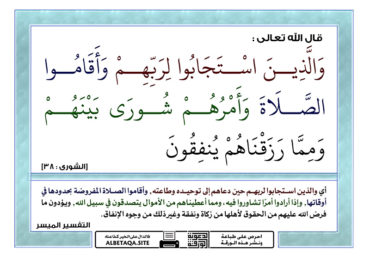 قال الله تعالى :
وَالَّذِيـنَ اسْـتَجَابُوا لِرَبِّهِـمْ وَأَقَامُـوا
الصَّـلَاةَ وَأَمْرُهُـمْ شُـورَى بَيْنَهُـمْ
وَمِمَّا رَزَقْنَاهُمْ يُنفِقُونَ
[الشورى : ٣٨]
أي والذين استجابوا لربهم حين دعاهم إلى توحيده وطاعته، وأقاموا الصلاة المفروضة بحدودها في
أوقاتها، وإذا أرادوا أمرًا تشاوروا فيه، ومما أعطيناهم من الأموال يتصدقون في سبيل الله، ويؤدون ما
فرض الله عليهم من الحقوق لأهلها من زكاة ونفقة وغير ذلك من وجوه الإنفاق.
التفسير الميسر
احرص على طباعة
ونشر هذه الورقة
ALBETAQA.SITE